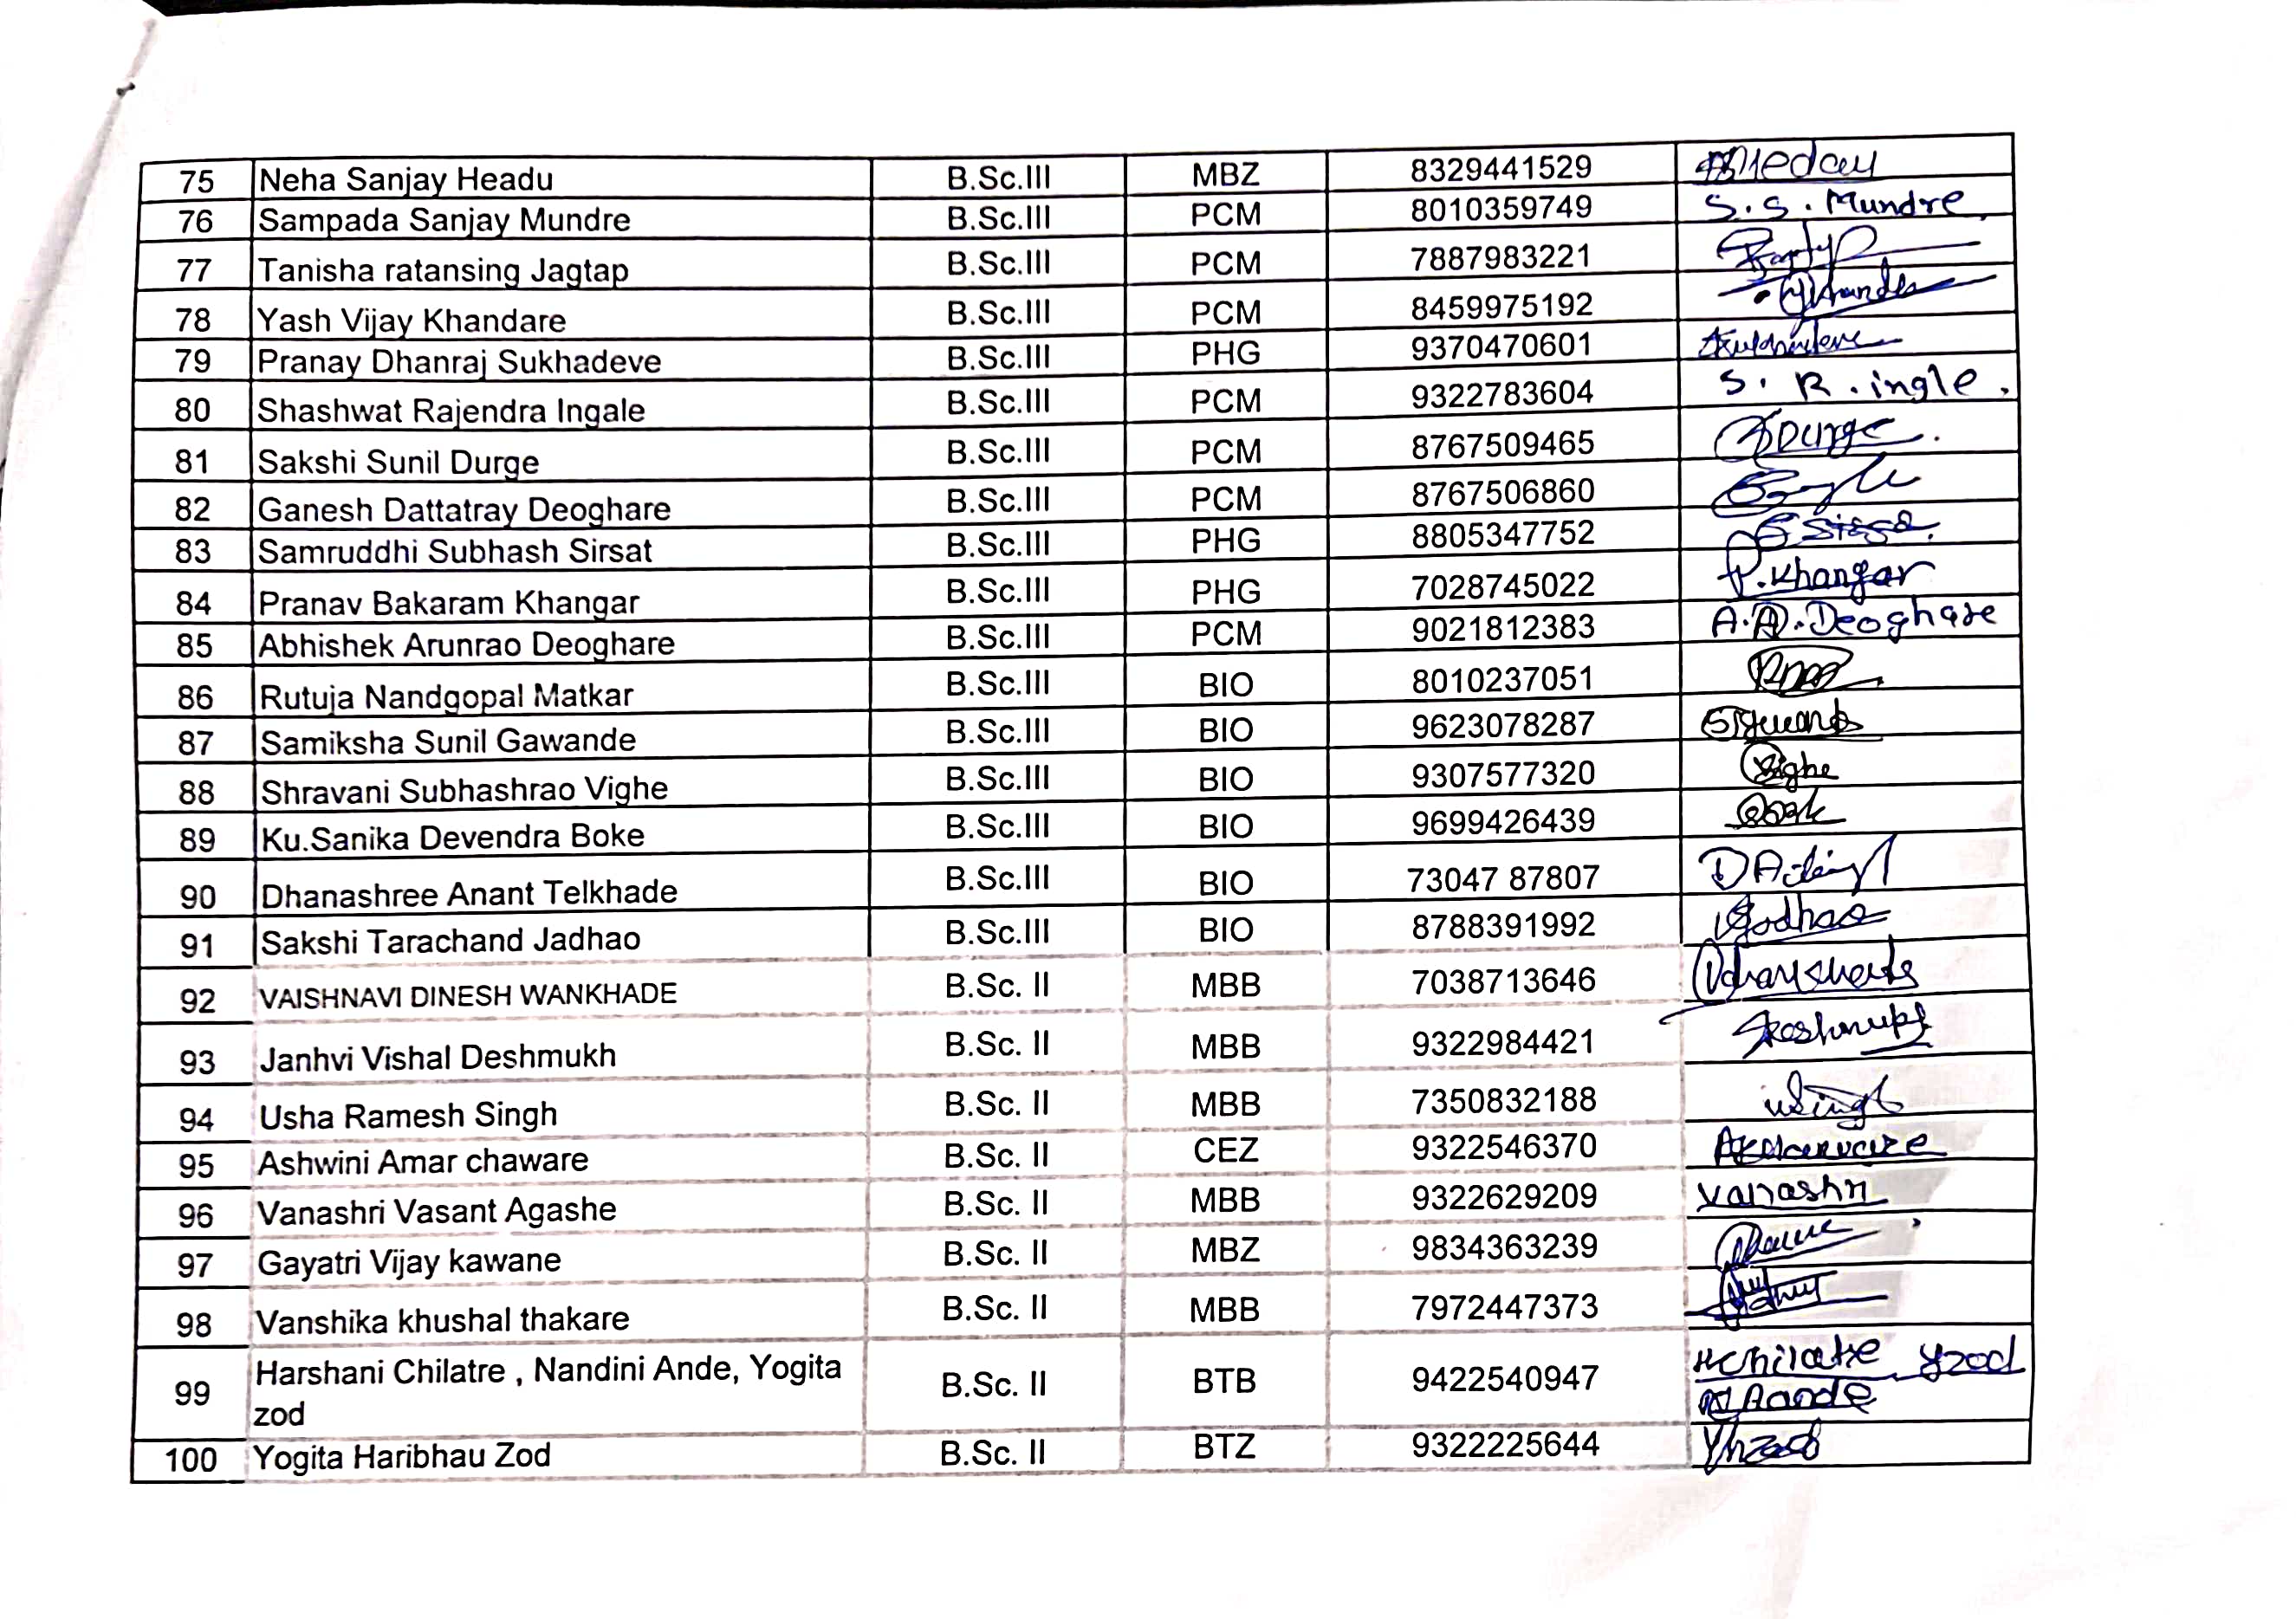 75 Neha Sanjay Headu B.Sc.III MBZ 8329441529
76 Sampada Sanjay Mundre B.Sc.III PCM 8010359749 S. S. Mundre
77 Tanisha ratansing Jagtap B.Sc.III PCM 7887983221
78 Yash Vijay Khandare B.Sc.III PCM 8459975192
79 Pranay Dhanraj Sukhadeve B.Sc.III PHG 9370470601
80 Shashwat Rajendra Ingale B.Sc.III PCM 9322783604 S. R. ingle.
81 Sakshi Sunil Durge B.Sc.III PCM 8767509465
82 Ganesh Dattatray Deoghare B.Sc.III PCM 8767506860
83 Samruddhi Subhash Sirsat B.Sc.III PHG 8805347752
84 Pranav Bakaram Khangar B.Sc.III PHG 7028745022 P. Khangar
85 Abhishek Arunrao Deoghare B.Sc.III PCM 9021812383 A.A. Deoghare
86 Rutuja Nandgopal Matkar B.Sc.III BIO 8010237051
87 Samiksha Sunil Gawande B.Sc.III BIO 9623078287
88 Shravani Subhashrao Vighe B.Sc.III BIO 9307577320
89 Ku.Sanika Devendra Boke B.Sc.III BIO 9699426439
90 Dhanashree Anant Telkhade B.Sc.III BIO 73047 87807
91 Sakshi Tarachand Jadhao B.Sc.III BIO 8788391992
92 VAISHNAVI DINESH WANKHADE B.Sc. II MBB 7038713646
93 Janhvi Vishal Deshmukh B.Sc. II MBB 9322984421
94 Usha Ramesh Singh B.Sc. II MBB 7350832188
95 Ashwini Amar chaware B.Sc. II CEZ 9322546370
96 Vanashri Vasant Agashe B.Sc. II MBB 9322629209 Vanashri
97 Gayatri Vijay kawane B.Sc. II MBZ 9834363239
98 Vanshika khushal thakare B.Sc. II MBB 7972447373
99 Harshani Chilatre , Nandini Ande, Yogita B.Sc. II BTB 9422540947 HChilatre Yzod
zod N Aande
100 Yogita Haribhau Zod B.Sc. II BTZ 9322225644 Yhzod